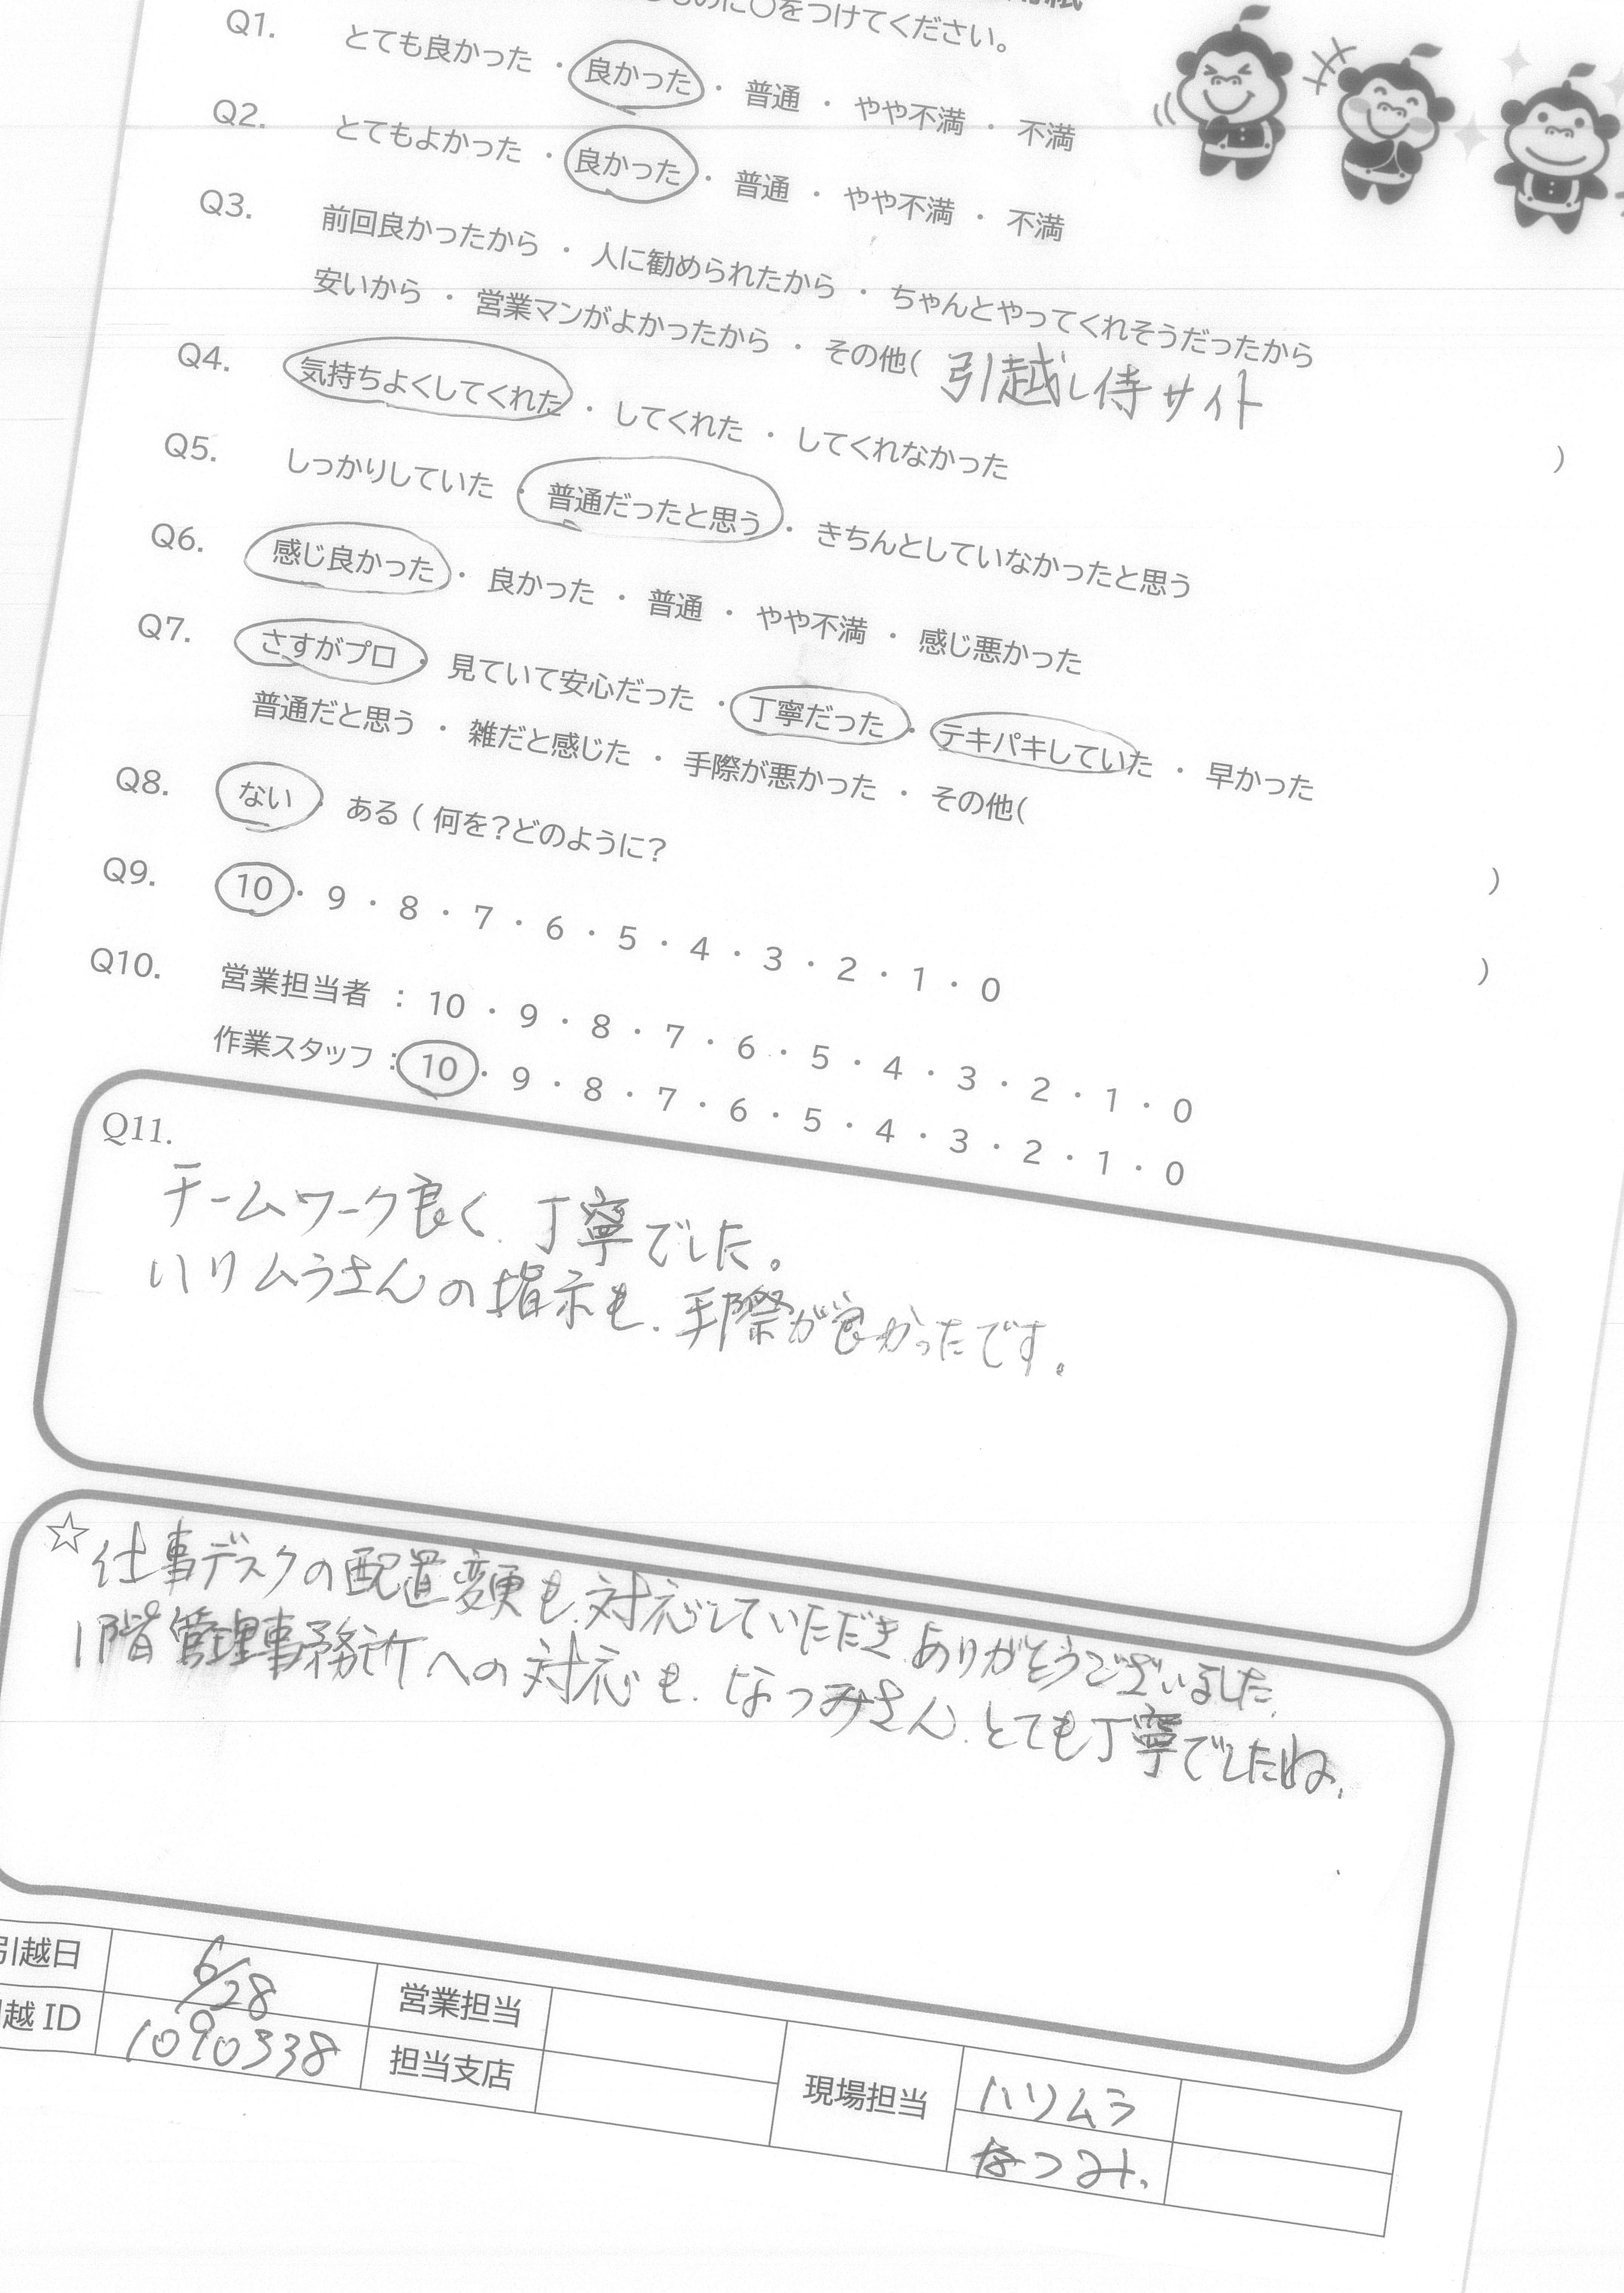 ものに〇をつけてください。
Q1. とても良かった ・ 良かった ・ 普通 ・ やや不満 ・ 不満
Q2. とてもよかった ・ 良かった ・ 普通 ・ やや不満 ・ 不満
Q3. 前回良かったから ・ 人に勧められたから ・ ちゃんとやってくれそうだったから
安いから ・ 営業マンがよかったから ・ その他( 引越し侍サイト )
Q4. 気持ちよくしてくれた ・ してくれた ・ してくれなかった
Q5. しっかりしていた ・ 普通だったと思う ・ きちんとしていなかったと思う
Q6. 感じ良かった ・ 良かった ・ 普通 ・ やや不満 ・ 感じ悪かった
Q7. さすがプロ ・ 見ていて安心だった ・ 丁寧だった ・ テキパキしていた ・ 早かった
普通だと思う ・ 雑だと感じた ・ 手際が悪かった ・ その他( )
Q8. ない ・ ある ( 何を?どのように? )
Q9. 10 ・ 9 ・ 8 ・ 7 ・ 6 ・ 5 ・ 4 ・ 3 ・ 2 ・ 1 ・ 0
Q10. 営業担当者 : 10 ・ 9 ・ 8 ・ 7 ・ 6 ・ 5 ・ 4 ・ 3 ・ 2 ・ 1 ・ 0
作業スタッフ : 10 ・ 9 ・ 8 ・ 7 ・ 6 ・ 5 ・ 4 ・ 3 ・ 2 ・ 1 ・ 0
Q11.
チームワーク良く、丁寧でした。
ハリムラさんの指示も、手際が良かったです。
☆仕事デスクの配置変更も、対応していただき、ありがとうございました。
1階管理事務所への対応も、なつみさん、とても丁寧でしたね。
引越日 6/28 営業担当
越 ID 1090338 担当支店
現場担当 ハリムラ
なつみ.